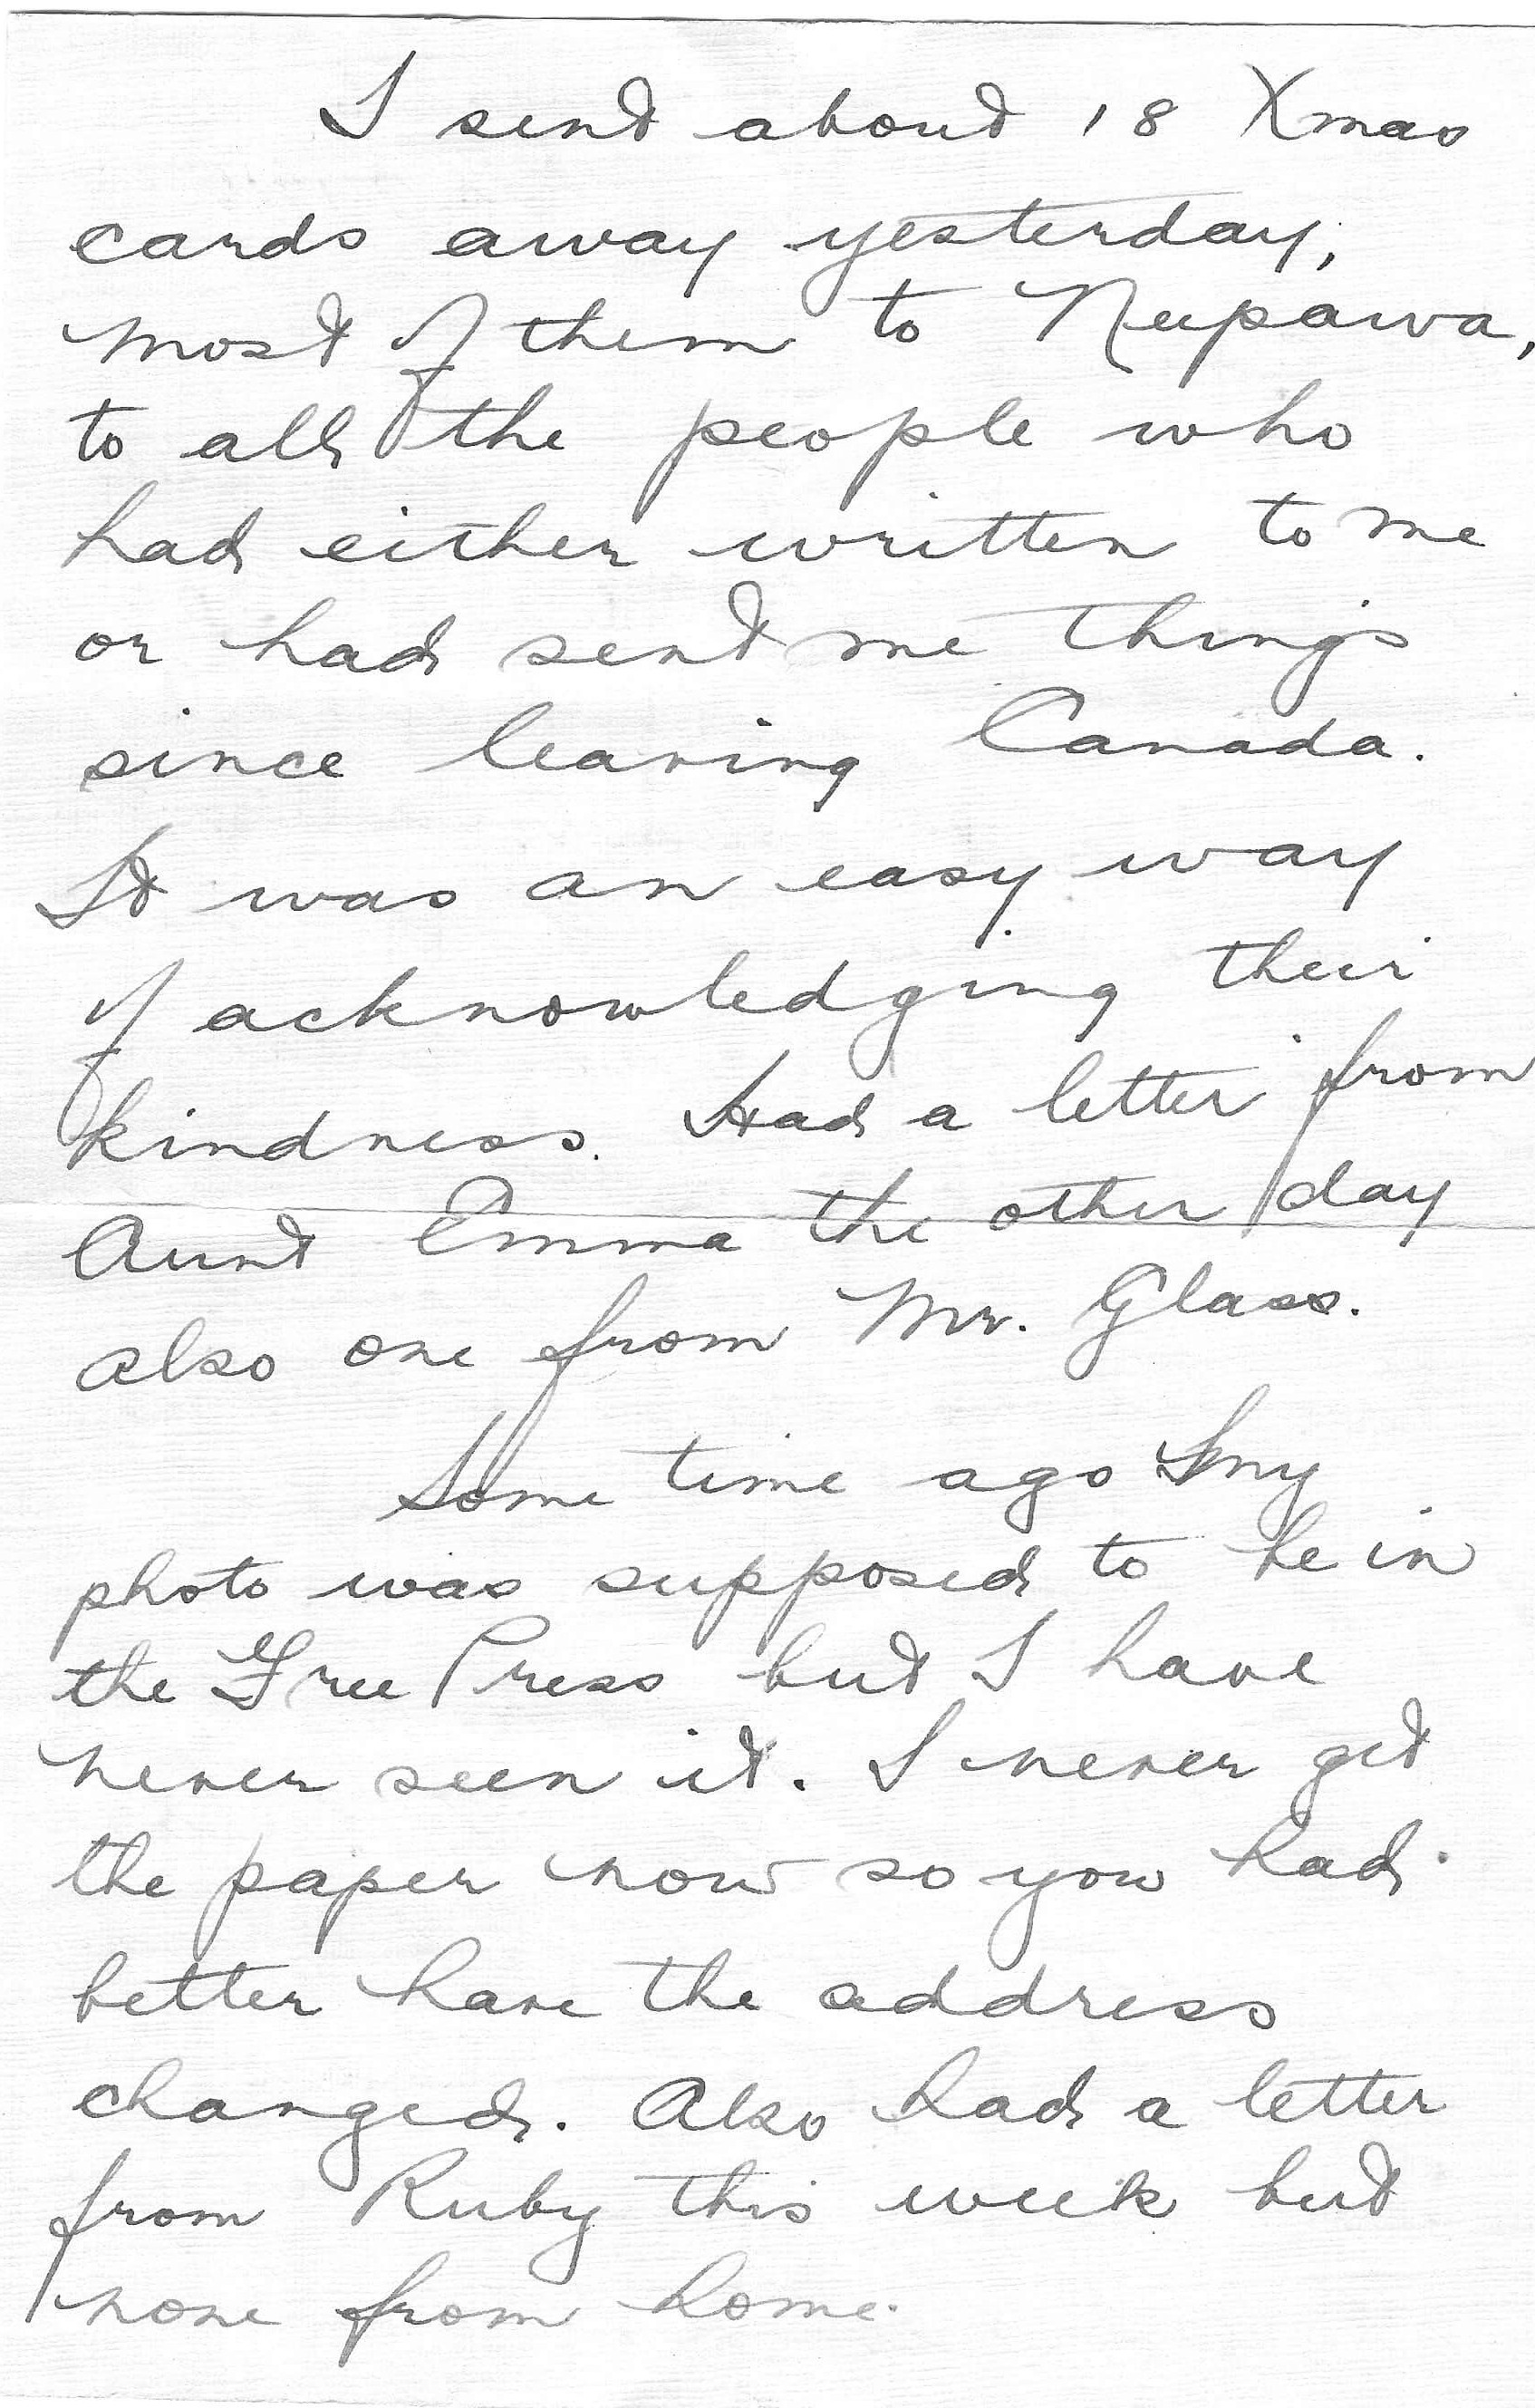 I sent about 18 Xmas
cards away yesterday,
most of them to Neepawa,
to all the people who
had either written to me
or had sent me things
since leaving Canada.
It was an easy way
of acknowledging their
kindness. Had a letter from
Aunt Emma the other day
also one from Mr. Glass.
Some time ago my
photo was supposed to be in
the Free Press but I have
never seen it. I never get
the paper now so you had
better have the address
changed. Also had a letter
from Ruby this week but
none from home.